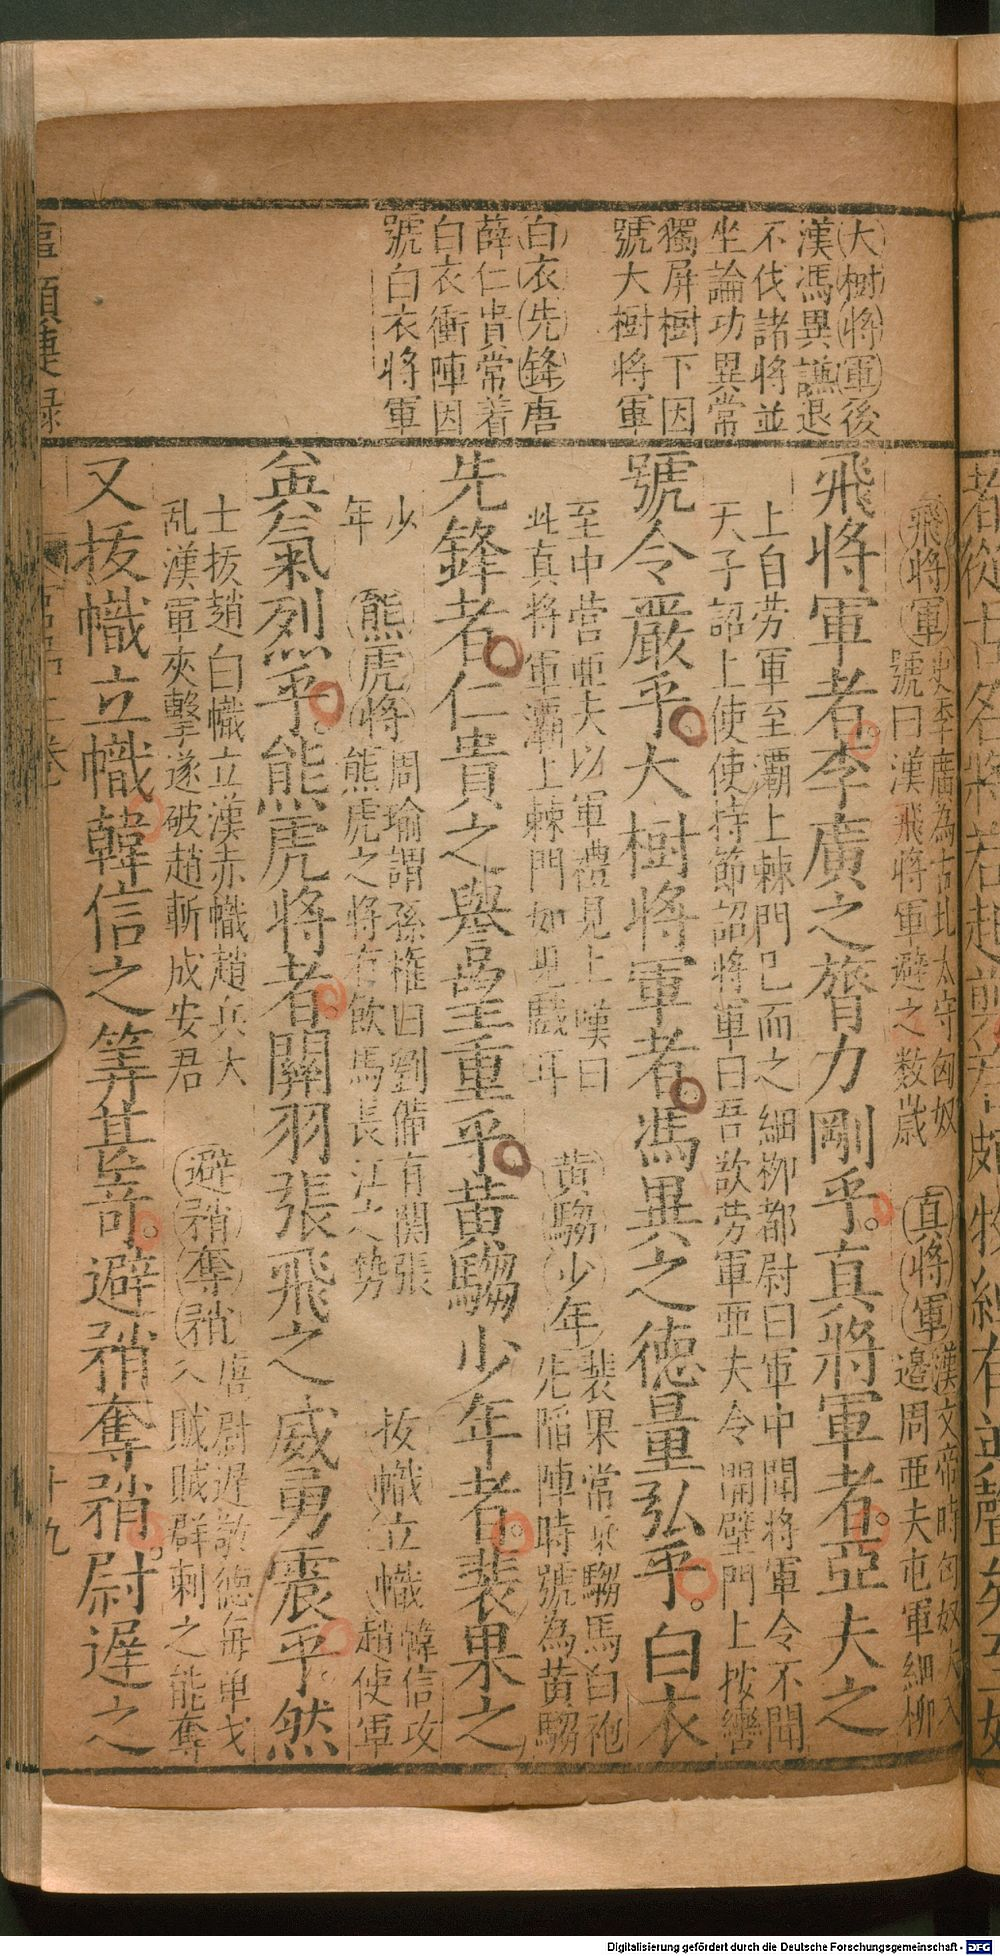 大樹將軍後
漢馮異謙退
不伐諸將並
坐論功異常
獨屏樹下因
號大樹将軍
白衣先鋒唐
薛仁貴常着
白衣衝陣因
號白衣将軍
飛将軍
史李廣為右北太守匈奴
號曰漢飛将軍避之数歲
真将軍
漢文帝時匈奴大入
邉周亜夫屯軍細栁
飛将軍者李廣之膂力剛乎真將軍者亞夫之
上自劳軍至灞上棘門已而之細栁都尉曰軍中聞将軍令不聞
天子詔上使使持節詔将軍曰吾欲劳軍亜夫令開壁門上按轡
號令嚴乎大樹将軍者馮異之德量弘乎白衣
至中营亜夫以軍禮見上嘆曰
此真将軍灞上棘門如兒戲耳
黄騶少年
裴果常乗騶馬白袍
先陥陣時號為黄騶
先鋒者仁貴之譽望重乎黄騶少年者裴果之
少
年
熊虎将
周瑜謂孫権曰劉備有関張
熊虎之将有飲馬長江之势
抜幟立幟
韓信攻
趙使軍
兵氣烈乎熊虎将者關羽張飛之威勇震乎然
士抜趙白幟立漢赤幟趙兵大
乱漢軍夾擊遂破趙斬成安君
避矟奪矟
唐尉遲敬德每单戈
入賊賊群刺之能奪
又抜幟立幟韓信之筭甚竒避矟奪矟尉遲之
十九
Digitalisierung gefördert durch die Deutsche Forschungsgemeinschaft - DFG